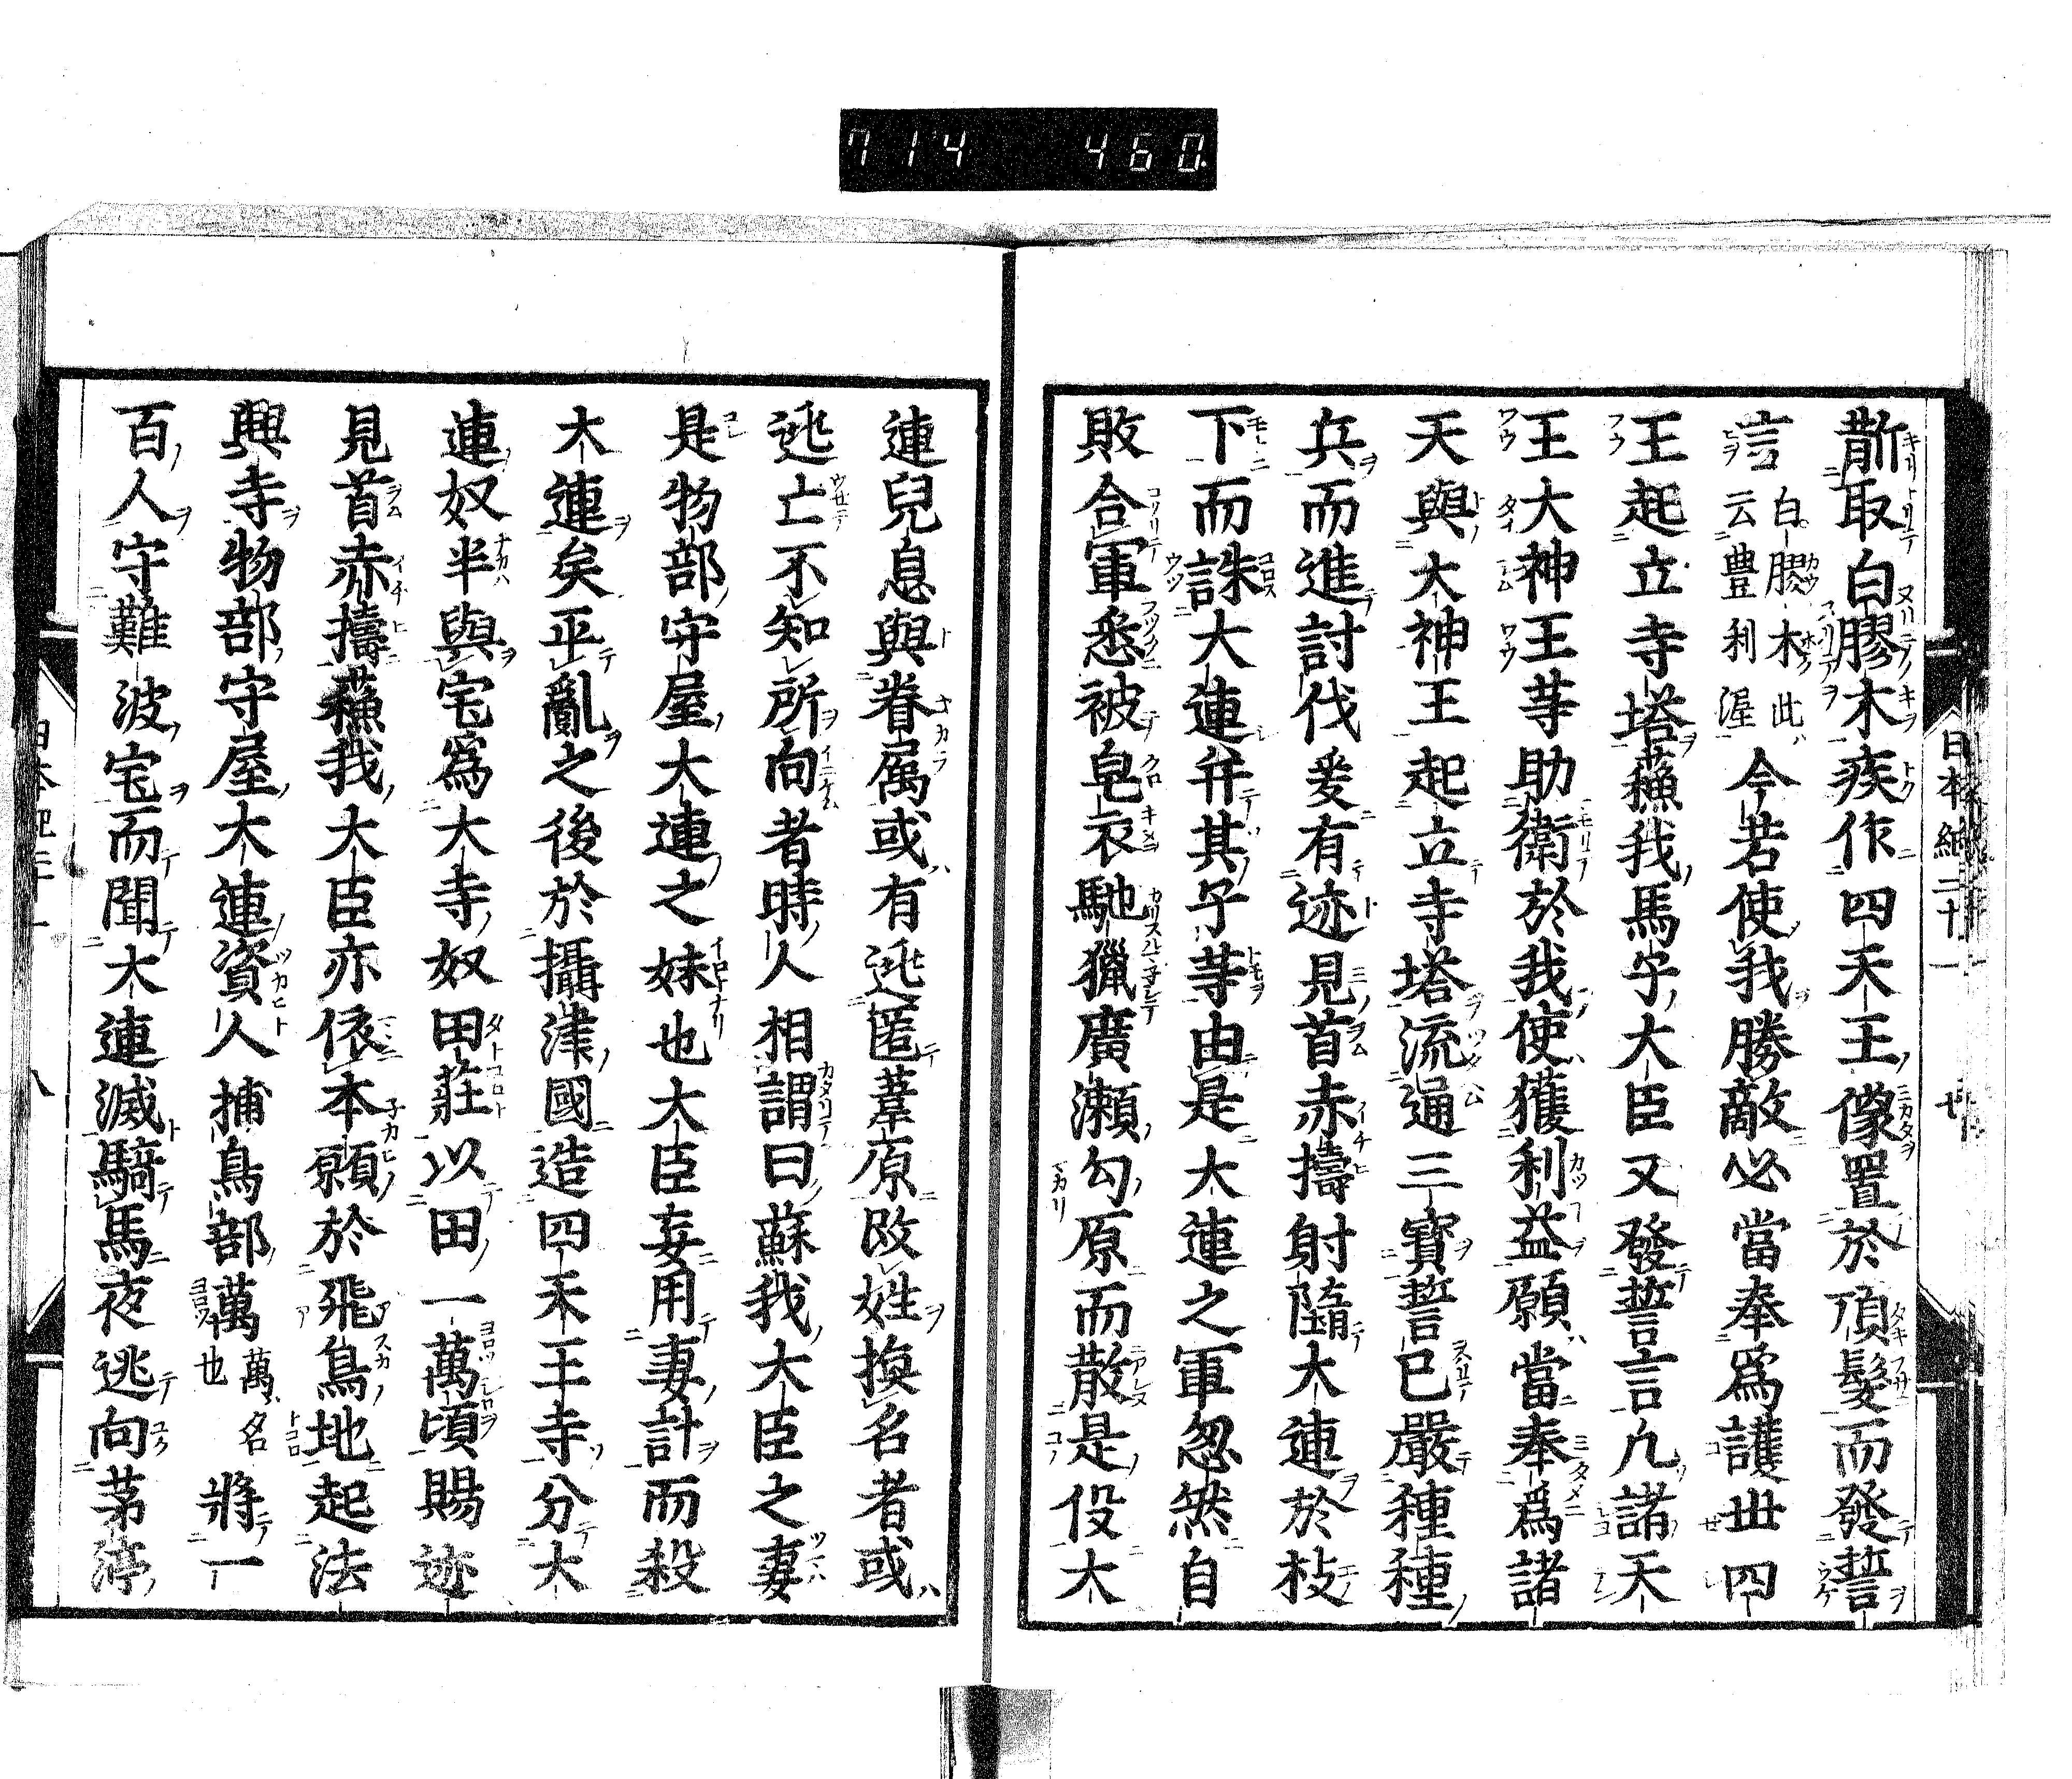 714 460.
日本紀二十一
斮取白膠木疾作四天王像置於頂髮而發誓
言白膠木此云豊利渥今若使我勝敵必當奉爲護世四
王起立寺塔蘓我馬子大臣又發誓言凡諸天
王大神王等助衛於我使獲利益願當奉爲諸
天與大神王起立寺塔流通三寶誓已嚴種種
兵而進討伐爰有迹見首赤檮射隨大連於枝
下而誅大連并其子等由是大連之軍忽然自
敗合軍悉被皂衣馳獵廣瀬勾原而散是伇大
連兒息與眷属或有逃匿葦原改姓換名者或
逃亡不知所向者時人相謂曰蘇我大臣之妻
是物部守屋大連之妹也大臣妄用妻計而殺
大連矣平亂之後於攝津國造四天王寺分大
連奴半與宅爲大寺奴田莊以田一萬頃賜迹
見首赤檮蘓我大臣亦依本願於飛鳥地起法
興寺物部守屋大連資人捕鳥部萬萬名也將一
百人守難波宅而聞大連滅騎馬夜逃向茅渟